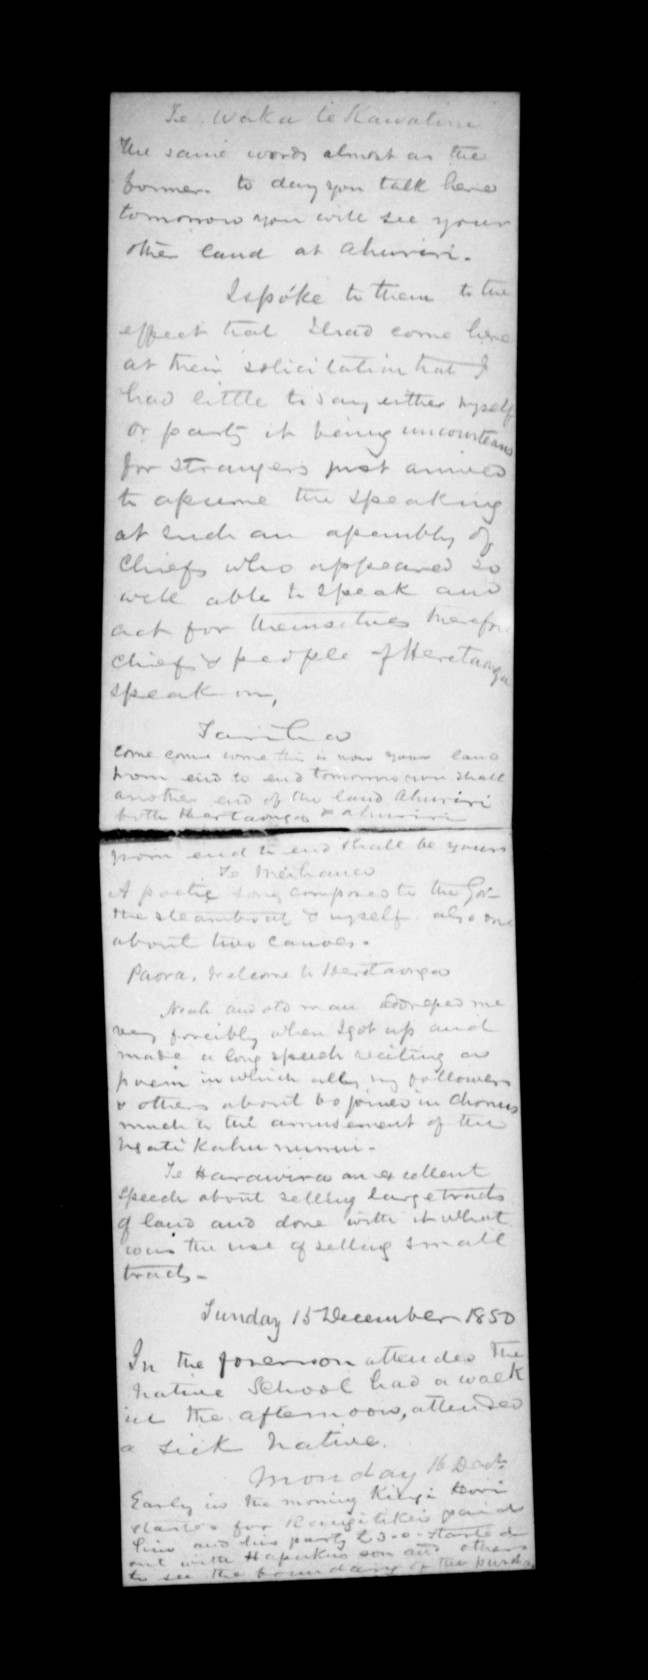 Te Waka te Kawatini
the same words almost as the
former. to day you talk here
tomorrow you will see your
other land at Ahuriri.
I spoke to them to the
effect that I had come here
at their solicitation that I
had little to say either myself
or party it being uncourteous
for strangers just arrived
to assume the speaking
at such an assembly of
Chiefs who appeared so
well able to speak and
act for themselves therefore
chiefs & people of Heretaonga
speak on,
Tariha
Come come come this is now your land
from end to end tomorrow you shall
another end of the land Ahuriri
both Heretaonga & Ahuriri
from end to end shall be yours
Te Meihana
A poetic song composed to the Gov
the steamboat & myself. also one
about two canoes.
Paora. Welcome to Heretaonga
Noah an old man addressed me
very forcibly when I got up and
made a long speech reciting a
poem in which all my followers
& others about 60 joined in chorus
much to the amusement of the
Ngati Kahunununu.
Te Harawira an excellent
speech about selling large tracts
of land and done with it what
was the use of selling small
tracts.
Sunday 15 December 1850
In the forenoon attended the
native School had a walk
in the afternoon, attended
a sick native.
Monday 16 Decr
Early in the morning Kingi Hori
started for Rangitikei paid
him and his party £3.0. started
out with Hapuku's son and others
to see the boundary of the